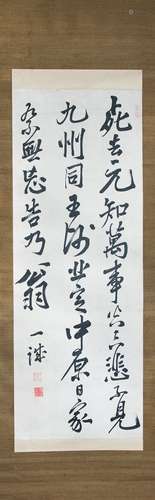 死去元知萬事空但悲不見
九州同王師北定中原日家
祭無忘告乃翁 一誠